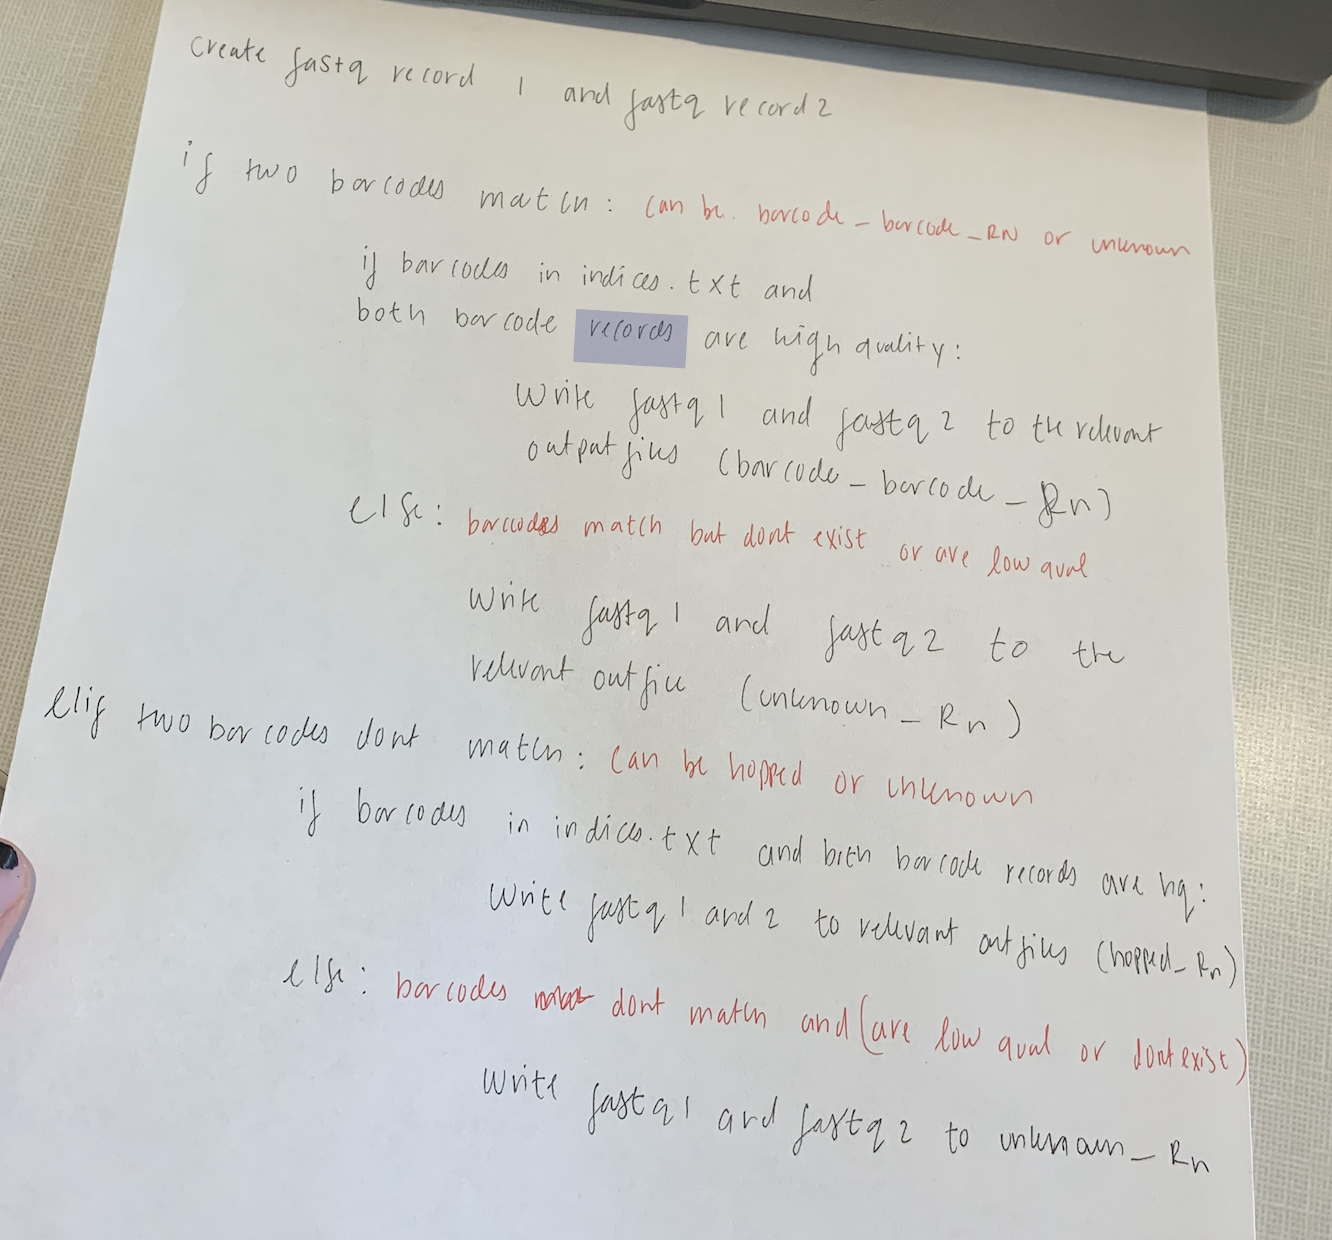 create fastq record 1 and fastq record 2
if two barcodes match: can be barcode_barcode_RN or unknown
if barcodes in indices.txt and
both barcode records are high quality:
Write fastq 1 and fastq 2 to the relevant
output files (barcode_barcode_Rn)
else: barcodes match but dont exist or are low qual
Write fastq 1 and fastq 2 to the
relevant outfile (unknown_Rn)
elif two barcodes dont match: can be hopped or unknown
if barcodes in indices.txt and both barcode records are hq:
Write fastq 1 and 2 to relevant outfiles (hopped_Rn)
else: barcodes dont match and (are low qual or dont exist)
Write fastq1 and fastq 2 to unknown_Rn